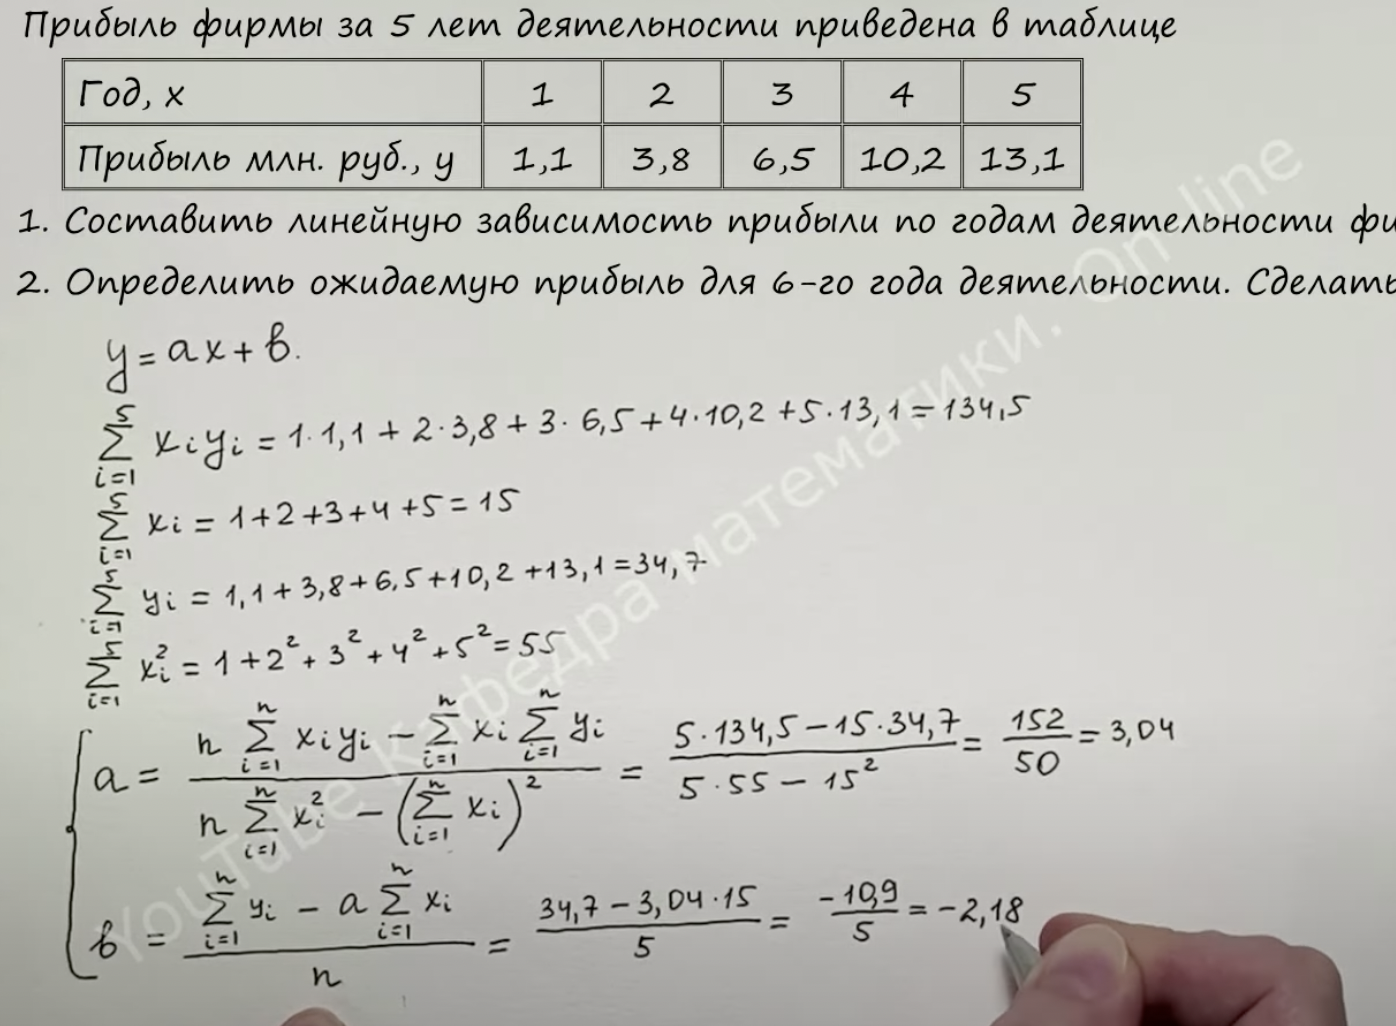 Прибыль фирмы за 5 лет деятельности приведена в таблице
Год, x 1 2 3 4 5
Прибыль млн. руб., y 1,1 3,8 6,5 10,2 13,1
1. Составить линейную зависимость прибыли по годам деятельности фи
2. Определить ожидаемую прибыль для 6-го года деятельности. Сделать
y = ax + b.
∑_{i=1}^{5} x_i y_i = 1·1,1 + 2·3,8 + 3·6,5 + 4·10,2 + 5·13,1 = 134,5
∑_{i=1}^{5} x_i = 1+2+3+4+5 = 15
∑_{i=1}^{5} y_i = 1,1+3,8+6,5+10,2+13,1 = 34,7
∑_{i=1}^{5} x_i^2 = 1+2^2+3^2+4^2+5^2 = 55
a = (n ∑_{i=1}^{n} x_i y_i − ∑_{i=1}^{n} x_i ∑_{i=1}^{n} y_i) / (n ∑_{i=1}^{n} x_i^2 − (∑_{i=1}^{n} x_i)^2) = (5·134,5 − 15·34,7) / (5·55 − 15^2) = 152/50 = 3,04
b = (∑_{i=1}^{n} y_i − a ∑_{i=1}^{n} x_i) / n = (34,7 − 3,04·15) / 5 = −10,9/5 = −2,18
YouTube Кафедра математики. On line